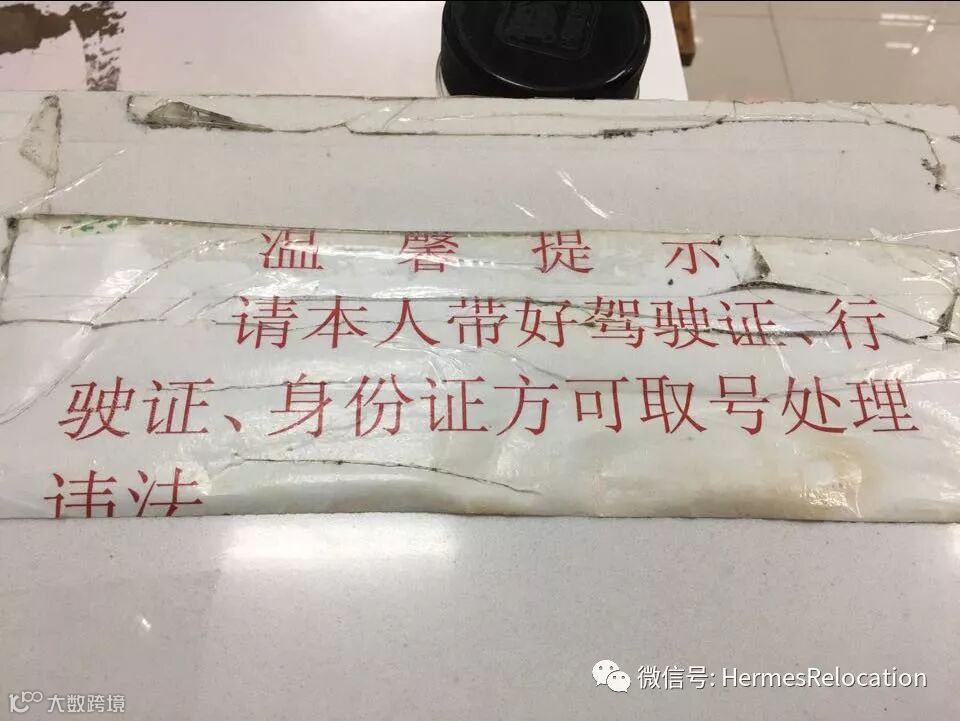 温馨提示
请本人带好驾驶证、行
驶证、身份证方可取号处理
违法
微信号: HermesRelocation
大数跨境